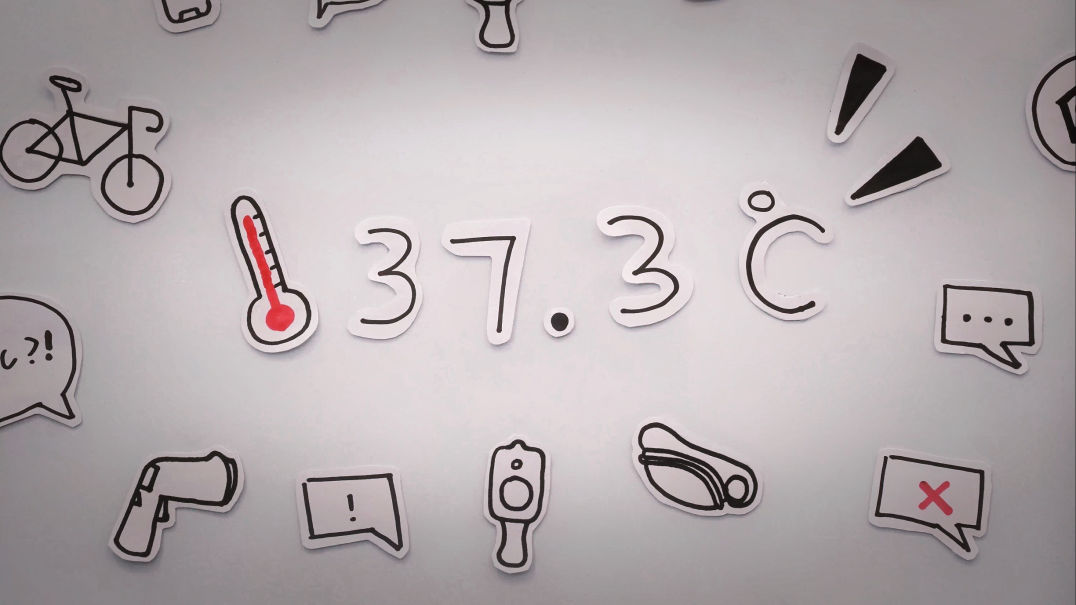 37.3 ℃
?!
!
...